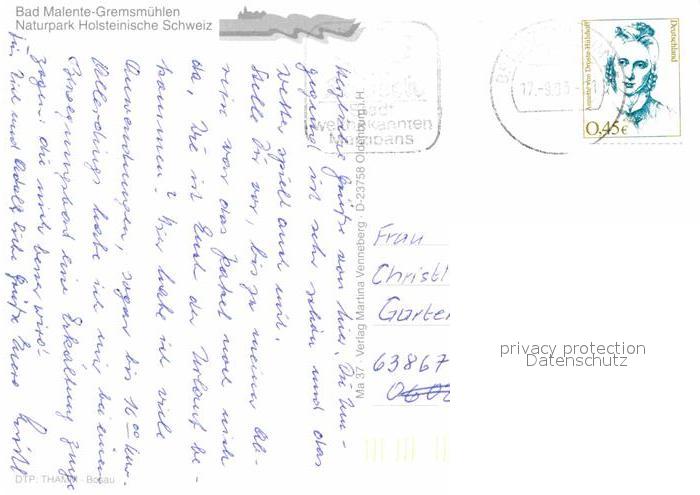 Bad Malente-Gremsmühlen
Naturpark Holsteinische Schweiz
Herzliche Grüße von hier. Die Um-
gebung ist sehr schön und das
Wetter spielt auch mit.
Stelle Dir vor, bis zu meiner Ab-
reise war das Paket noch nicht
da. Wie ist Euch der Urlaub be-
kommen? Hier habe ich viele
Anwendungen, sogar bis 16 00 Uhr.
Allerdings habe ich mir bei einem
eine Erkältung zuge-
zogen, die nicht besser wird!
Für Dich und Adolf liebe Grüße Eure
DTP: THAMM - Bosau
Ma 37 Verlag Martina Venneberg · D-23758 Oldenburg i.H.
weltbekannten
Marzipans
17.-9.03
Annette von Droste-Hülshoff
Deutschland
0,45€
Frau
Christl
Garten
63867
privacy protection
Datenschutz